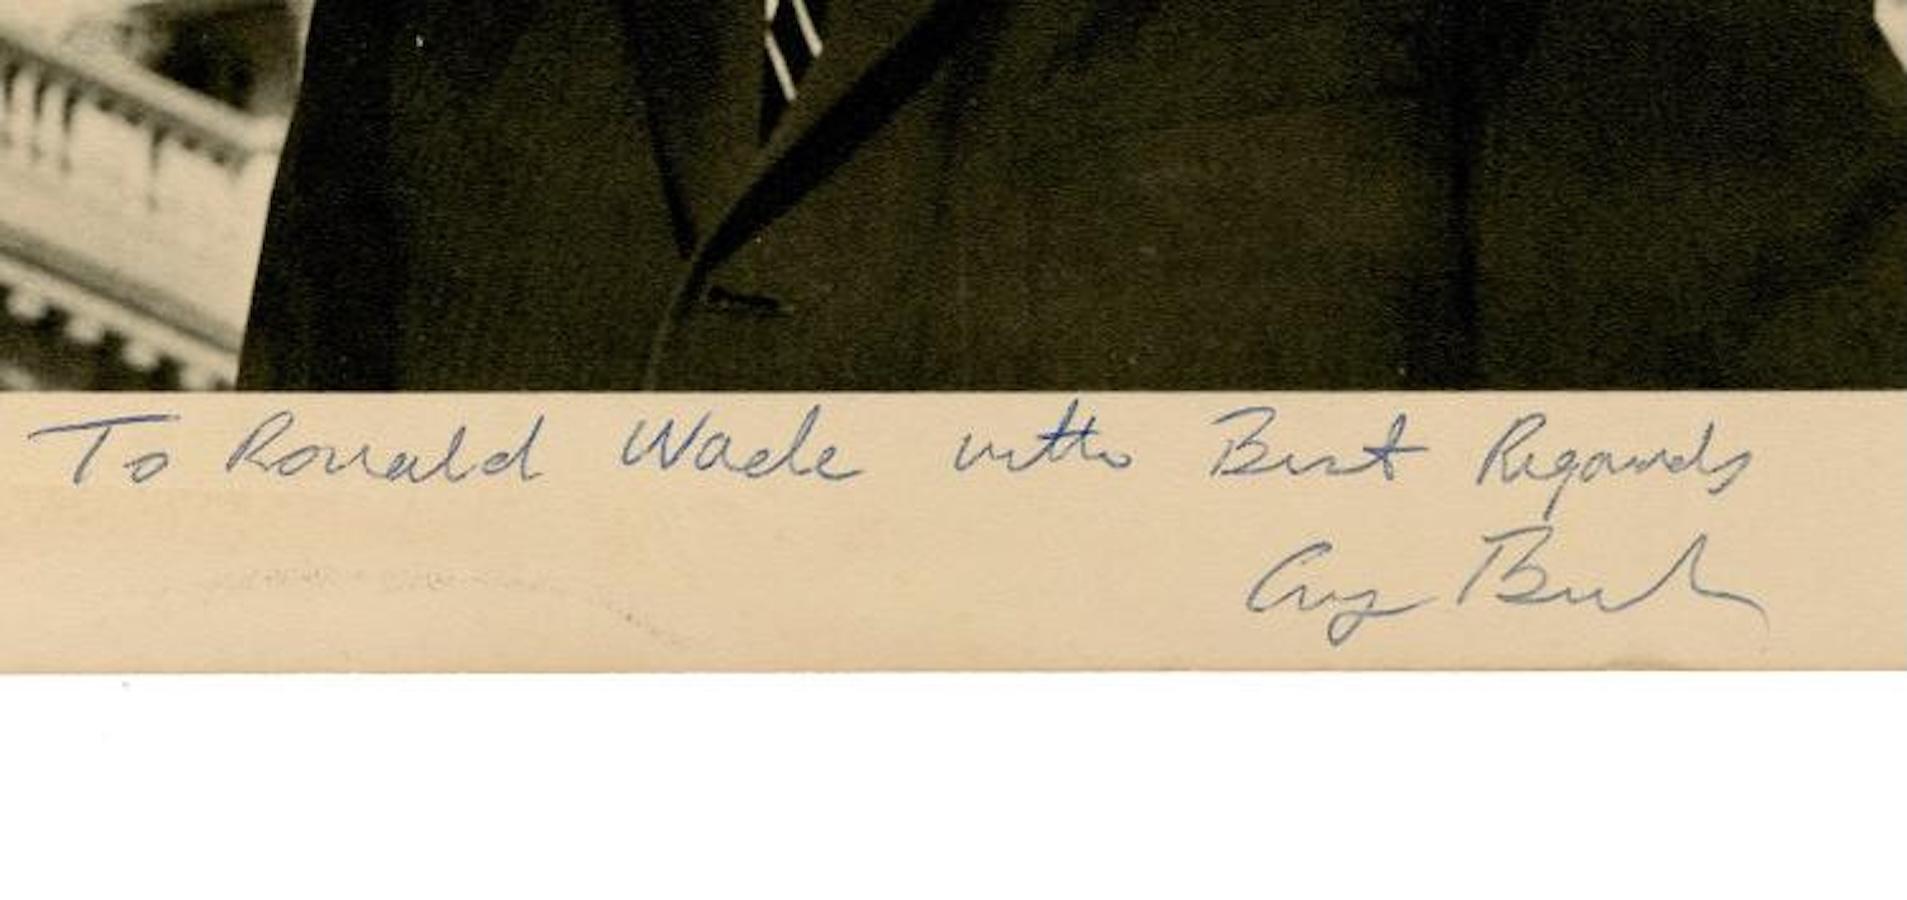 To Ronald Wade with Best Regards
Bush